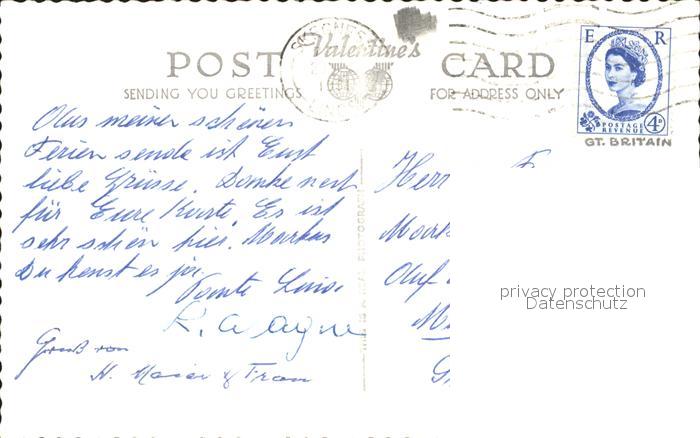 Valentine's
POST CARD
SENDING YOU GREETINGS FOR ADDRESS ONLY
E R
POSTAGE
REVENUE 4D
GT. BRITAIN
Aus meiner schönen
Ferien sende ich Euch
liebe Grüsse. Danke
für Eure Karte. Es ist
sehr schön hier. Markus
Du kenst es ja.
Tante
Gruß von
H. Maier & Frau
Herr
Mark
privacy protection
Datenschutz